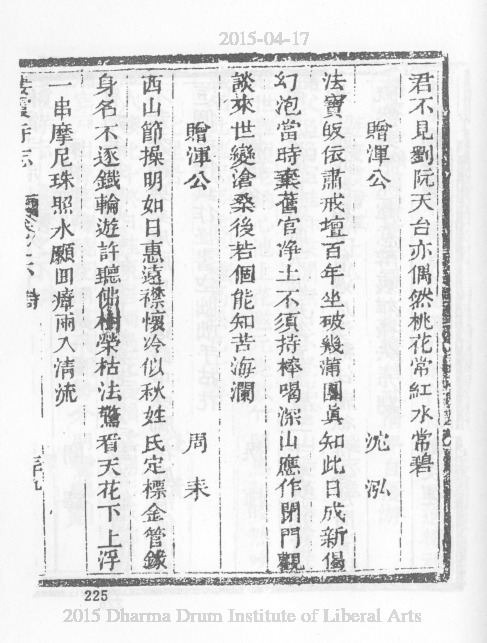 2015-04-17
君不見劉阮天台亦偶然桃花常紅水常碧
贈渾公 沈泓
法寶皈依肅戒壇百年坐破幾蒲團眞知此日成新偈
幻泡當時棄舊官净土不須持棒喝深山應作閉門觀
談來世變滄桑後若個能知苦海瀾
贈渾公 周耒
西山節操明如日惠遠襟懷冷似秋姓氏定標金管錄
身名不逐鐵輪遊許聽佛樹榮枯法驚看天花下上浮
一串摩尼珠照水願回癉雨入清流
寺志 卷之六 詩
225
2015 Dharma Drum Institute of Liberal Arts